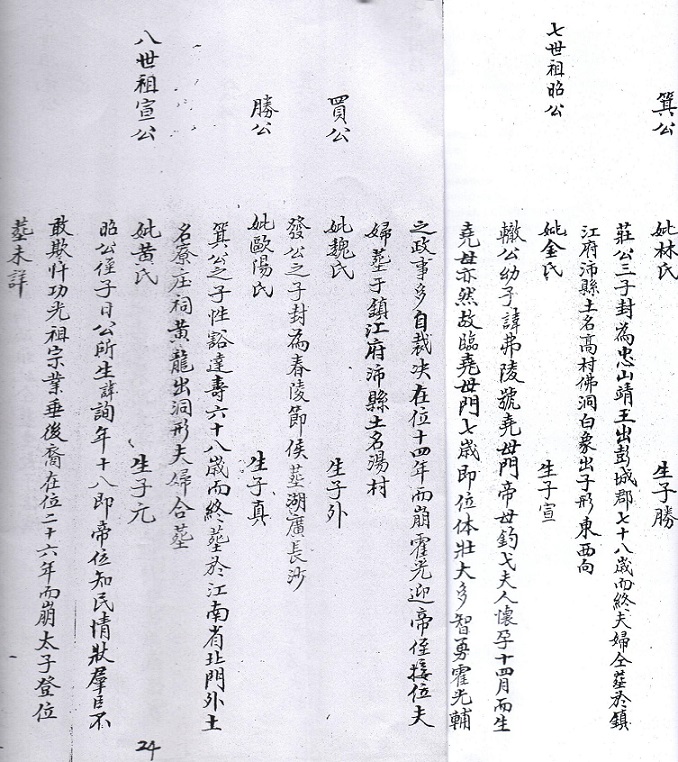 箕公
妣林氏 生子勝
莊公三子封為忠山靖王出彭城郡七十八歲而終夫婦仝塟於鎮
江府沛縣土名高村佛洞白象出子形東西向
七世祖昭公
妣金氏 生子宣
轍公幼子諱弗陵號堯母門帝母鈎弋夫人懷孕十四月而生
堯母亦然故臨堯母門七歲即位体壯大多智勇霍光輔
之政事多自裁决在位十四年而崩霍光迎帝侄接位夫
婦塟于鎮江府沛縣土名湯村
買公
妣魏氏 生子外
發公之子封為春陵節侯塟湖廣長沙
勝公
妣歐陽氏 生子真
箕公之子性豁達壽六十八歲而終塟於江南省北門外土
名寮庄祠黄龍出洞形夫婦合塟
八世祖宣公
妣黄氏 生子亢
昭公侄子日公所生諱詢年十八即帝位知民情狀羣臣不
敢欺忤功光祖宗業垂後裔在位二十六年而崩太子登位
塟未詳
24